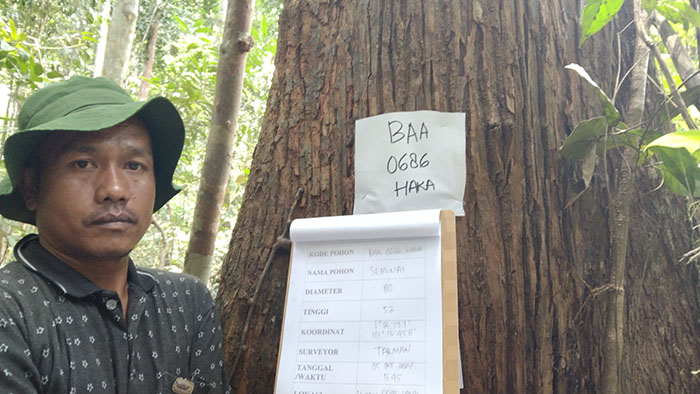 BAA
0686
HAKA
KODE POHON BAA 0686 HAKA
NAMA POHON SEMINAI
DIAMETER 80
TINGGI 52
KOORDINAT
SURVEYOR TARMAN
TANGGAL
/WAKTU 11:45